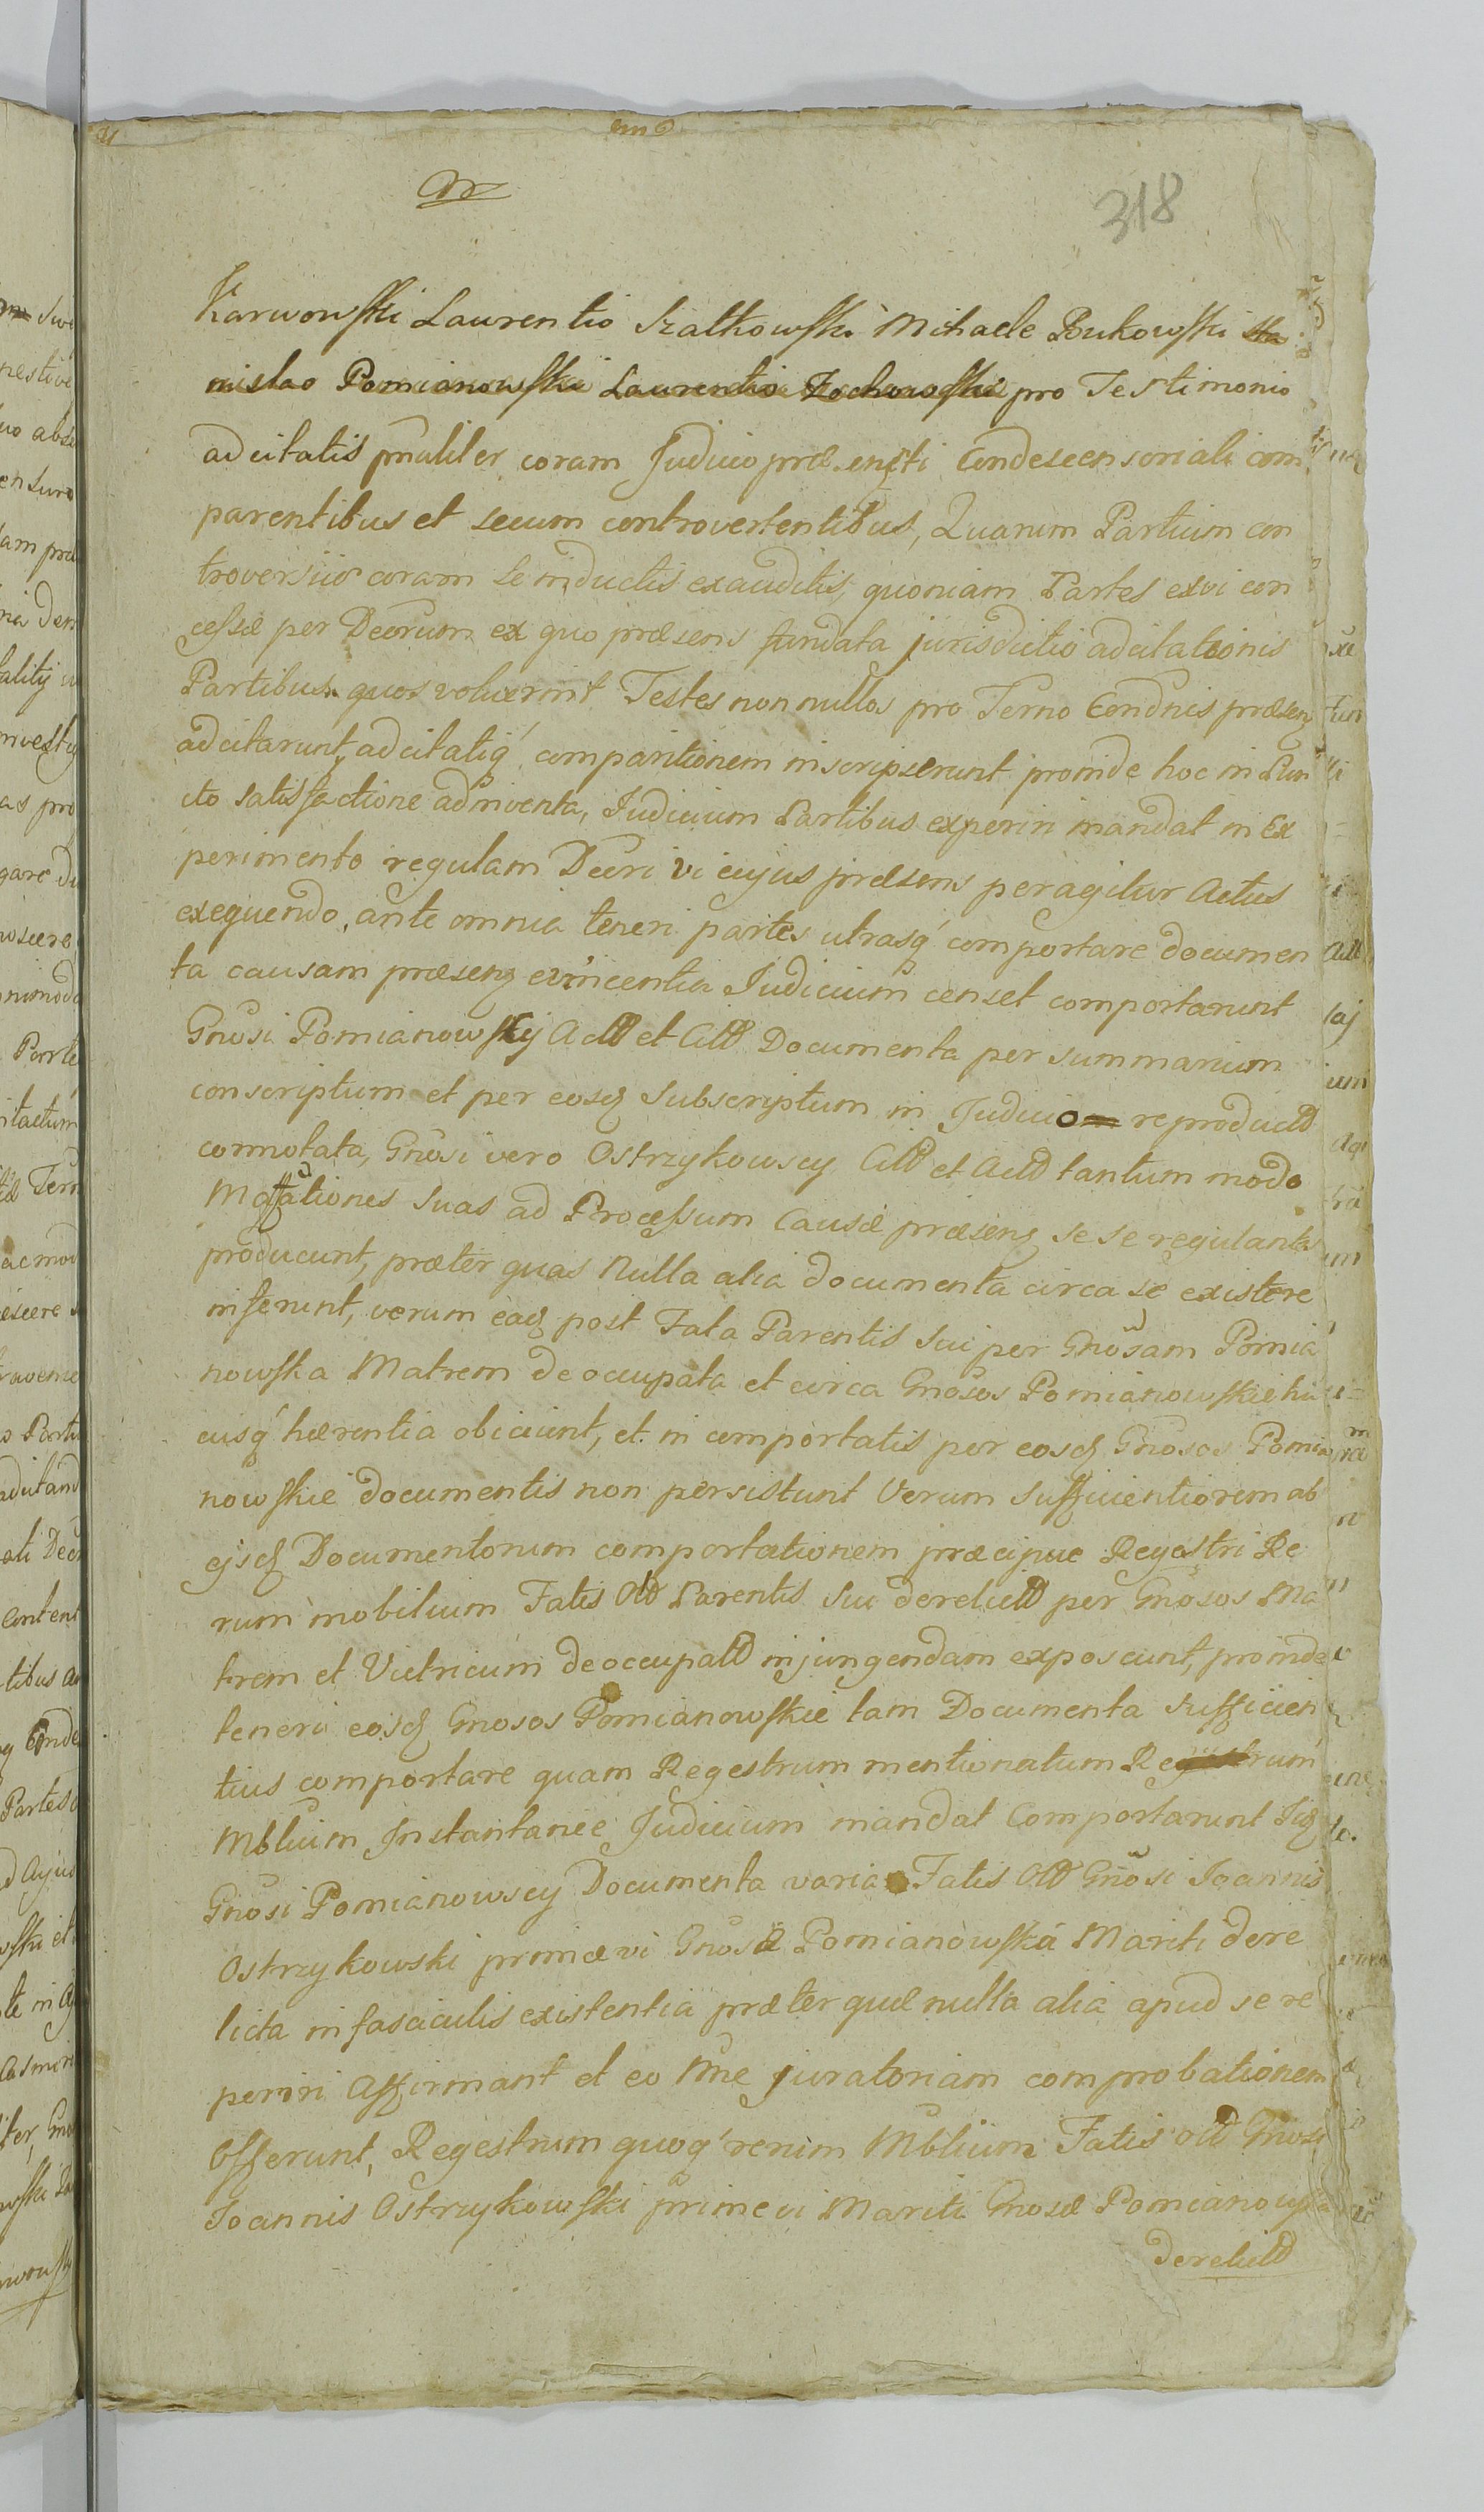 318
Karwowski Laurentio Szatkowski Michaele Bukowski Sta
nislao Pomianowski Laurentio Zochowski pro Testimonio
adcitatis pnaliter coram Judicio præsenti Condescensoriali com
parentibus et secum controvertentibus, Quarum Partium con
troversiis coram se inductis exauditis, quoniam Partes ex vi con
cessæ per Decrum ex quo præsens fundata jurisdictio adcitationis
Partibus quos voluerint Testes nonnullos pro Terno Condnis præsenz
adcitarunt, adcitatiq' comparitionem inscripserunt proinde hoc in Pun
cto satisfactione adinventa, Judicium Partibus experiri mandat in Ex
perimento regulam Decri vi cujus præsens peragitur Actus
exequendo, ante omnia teneri partes utrasq' comportare documen
ta causam præsenz evincentia Judicium censet comportarunt
Gnosi Pomianowscy Actt et Citt Documenta per summarium
conscriptum et per eosd subscriptum in Judicio reproductt
connotata, Gnosi vero Ostrzykowscy Citt et Actt tantum modo
Mffationes suas ad Processum Causæ præsenz se se regulantes
producunt, præter quas Nulla alia documenta circa se existere
inferunt, verum ead post Fata Parentis sui per Gnosam Pomia
nowska Matrem deoccupata et circa Gnosos Pomianowskie hu
cusq' hærentia obiciunt, et in comportatis per eosd Gnosos Pomia
nowskie documentis non persistunt Verum sufficientiorem ab
ejsd Documentorum comportationem præcipue Regestri Re
rum mobilium Fatis Ott Parentis sui derelictt per Gnosos Ma
trem et Vietricum deoccupatt injungendam exposcunt, proinde
teneri eosd Gnosos Pomianowskie tam Documenta sufficien
tius comportare quam Regestrum mentionatum Rerum
Mblium Instantanee Judicium mandat Comportarunt Iid
Gnosi Pomianowscy Documenta varia Fatis Ott Gnosi Joannis
Ostrzykowski primævi Gnosæ Pomianowska Mariti dere
licta in fasciculis existentia præter quæ nulla alia apud se re
periri Affirmant et eo nne juratoriam comprobationem
Offerunt, Regestrum quoq' rerum Mblium Fatis Ott Gnosi
Joannis Ostrzykowski primevi Mariti Gnosæ Pomianowska
derelictt